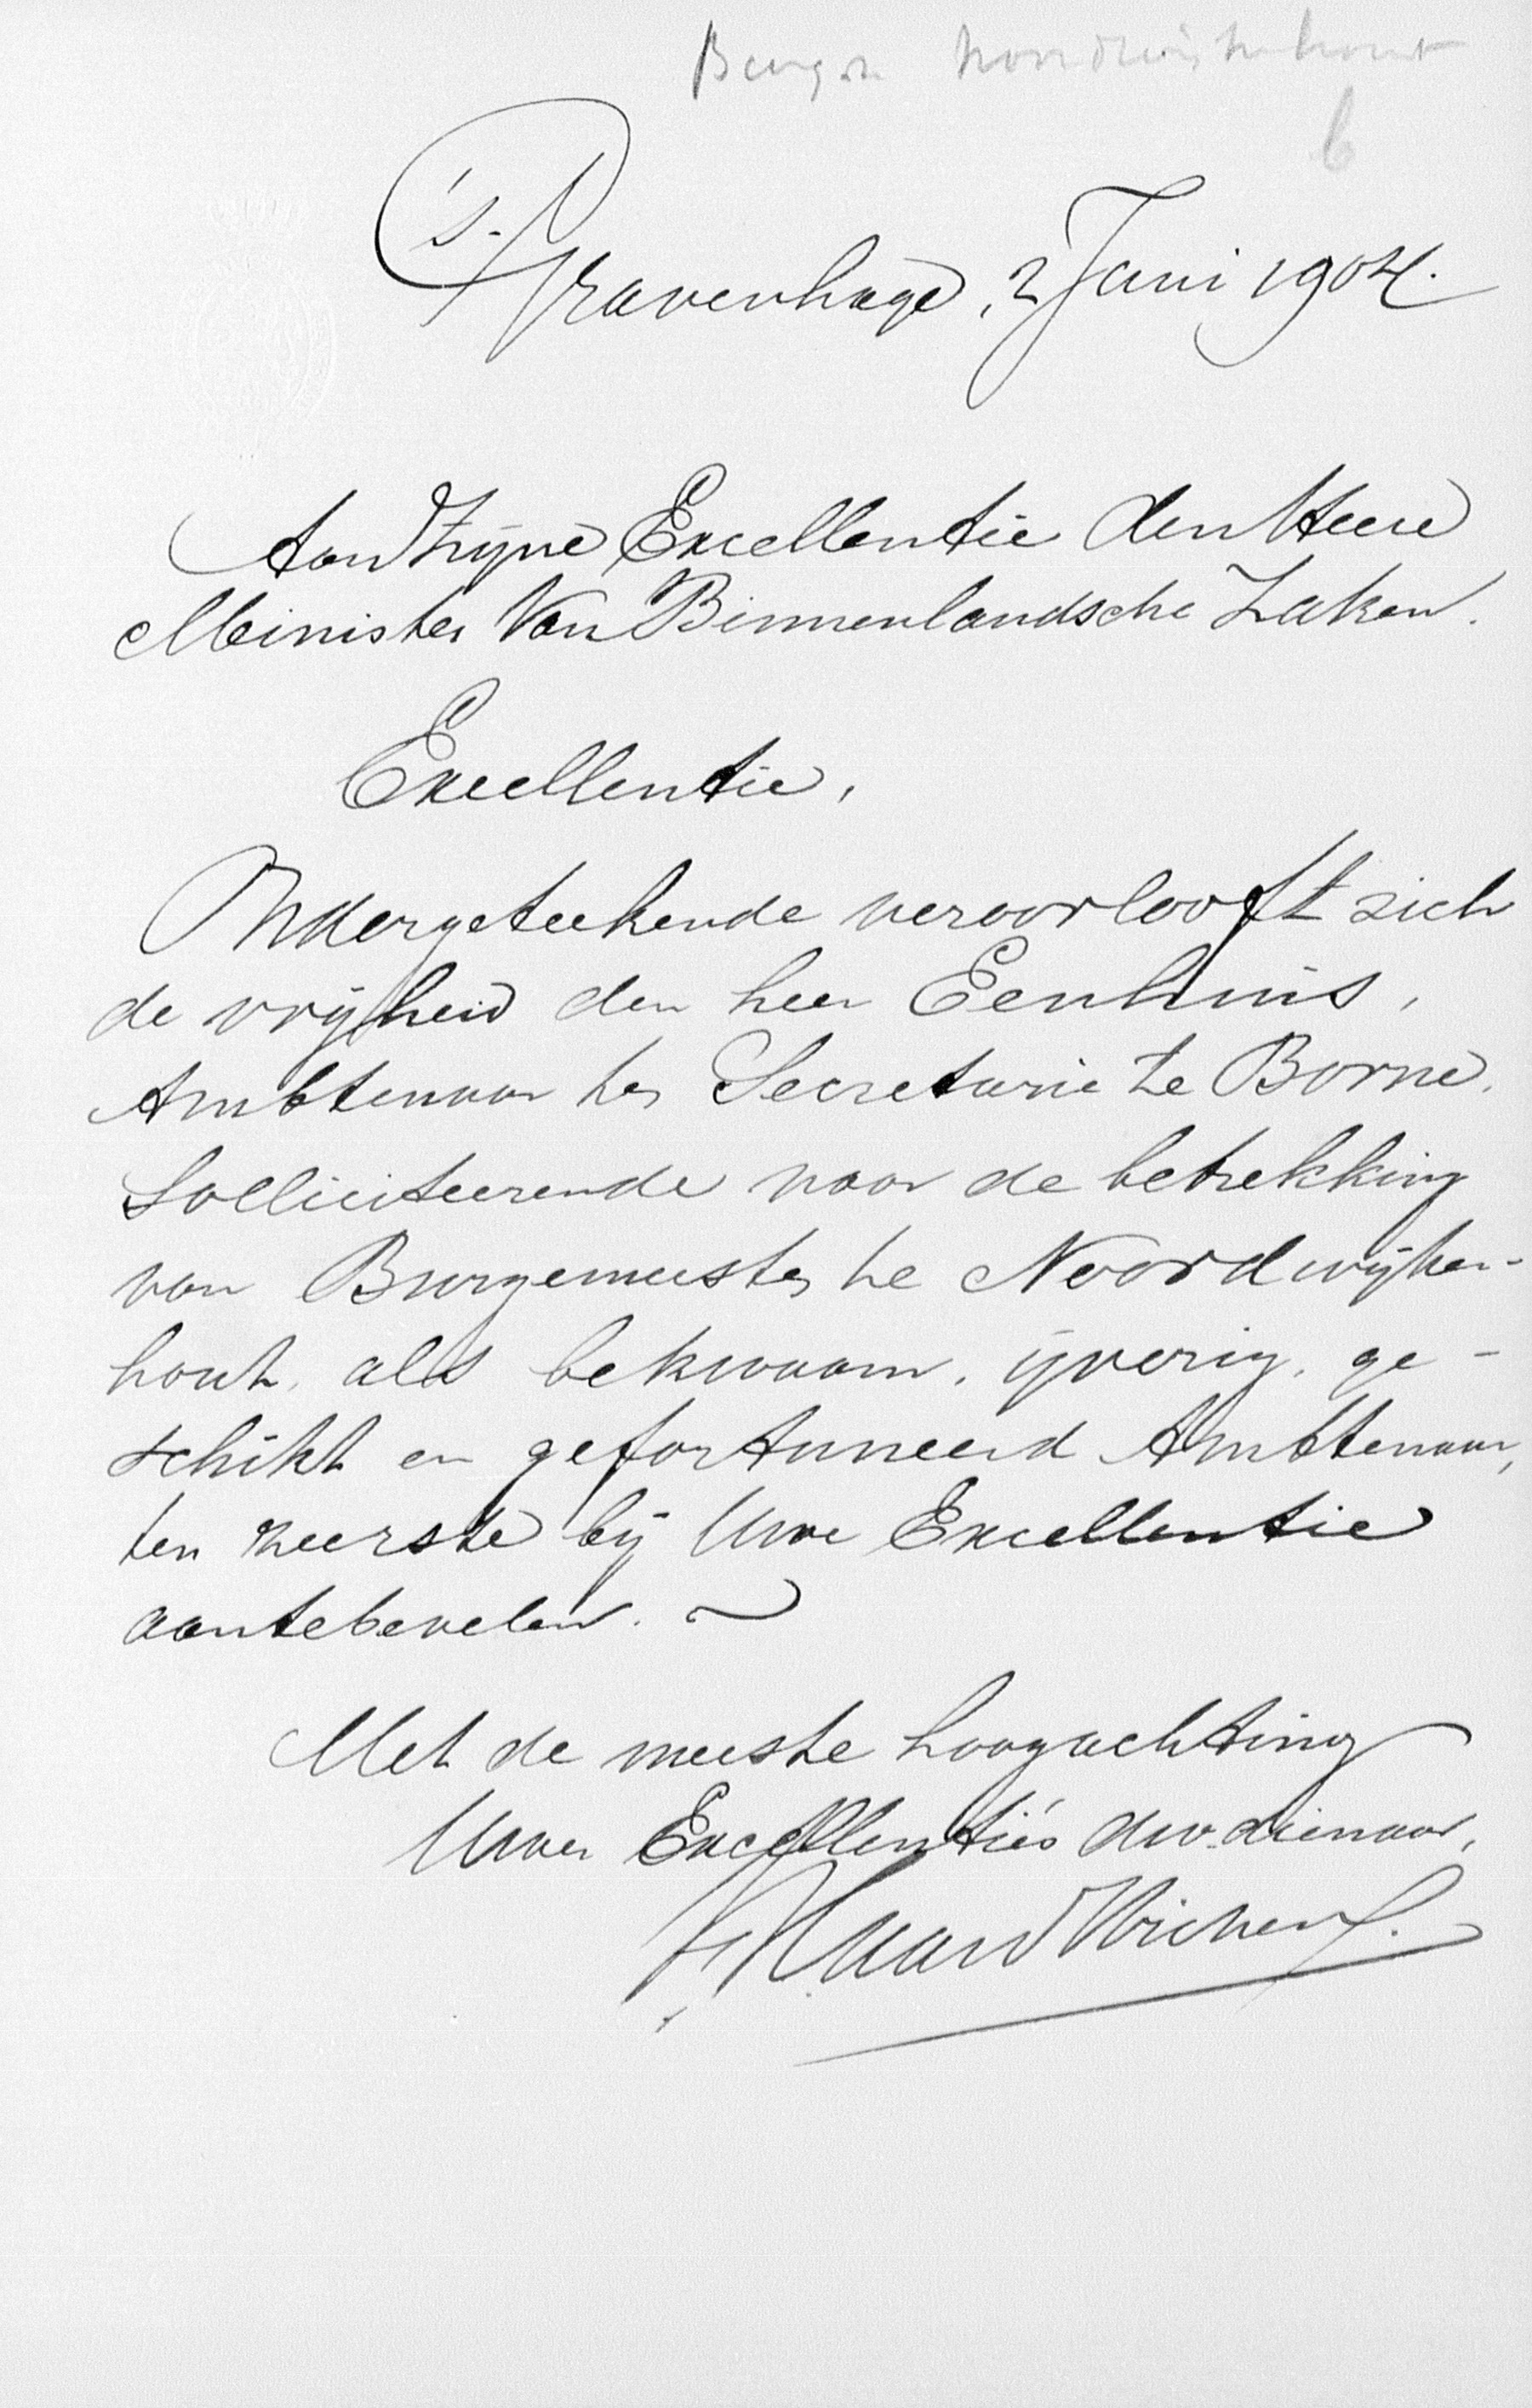 Burg.
b
's-Gravenhage, 2 Juni 1904.
Aan Zijne Excellentie den Heere
Minister Van Binnenlandsche Zaken.
Excellentie,
Ondergeteekende veroorlooft zich
de vrijheid den heer Eenhuis,
Ambtenaar ter Secretarie te Borne,
Solliciteerende naar de betrekking
van Burgemeester te Noordwijker-
hout, als bekwaam, ijverig, ge-
schikt en gefortuneerd Ambtenaar,
ten zeerste bij Uwe Excellentie
aantebevelen.
Met de meeste hoogachting
Uwer Excellentie's dw. dienaar,